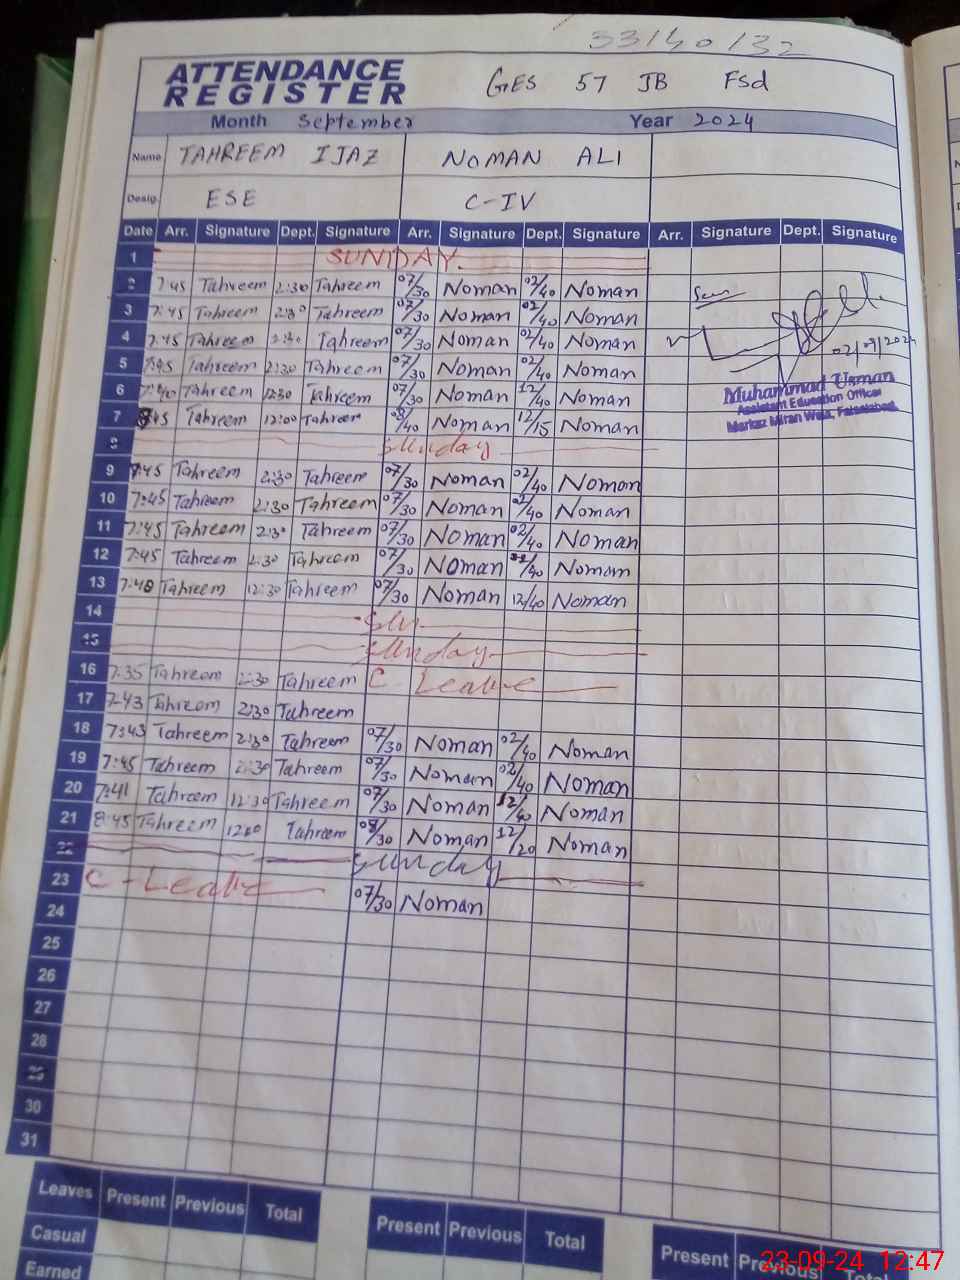 33140132
ATTENDANCE
REGISTER
GES 57 JB Fsd
Month September Year 2024
Name TAHREEM IJAZ NOMAN ALI
Desig. ESE C-IV
Date Arr. Signature Dept. Signature Arr. Signature Dept. Signature Arr. Signature Dept. Signature
1 SUNDAY.
2 7:45 Tahreem 2:30 Tahreem 07/30 Noman 02/40 Noman Seen
3 7:45 Tahreem 2:30 Tahreem 07/30 Noman 02/40 Noman
4 7:45 Tahreem 2:30 Tahreem 07/30 Noman 02/40 Noman 02/09/2024
5 7:45 Tahreem 2:30 Tahreem 07/30 Noman 02/40 Noman
Muhammad Usman
Assistant Education Officer
Markaz Miran Wala, Faisalabad.
6 7:40 Tahreem 12:30 Tahreem 07/30 Noman 12/40 Noman
7 8:45 Tahreem 12:00 Tahreem 08/40 Noman 12/15 Noman
8 Sunday
9 7:45 Tahreem 2:30 Tahreem 07/30 Noman 02/40 Noman
10 7:45 Tahreem 2:30 Tahreem 07/30 Noman 02/40 Noman
11 7:45 Tahreem 2:30 Tahreem 07/30 Noman 02/40 Noman
12 7:45 Tahreem 2:30 Tahreem 07/30 Noman 02/40 Noman
13 7:40 Tahreem 12:30 Tahreem 07/30 Noman 12/40 Noman
14
15 Sunday
16 7:35 Tahreem 2:30 Tahreem C Leave
17 7:43 Tahreem 2:30 Tahreem
18 7:43 Tahreem 2:30 Tahreem 07/30 Noman 02/40 Noman
19 7:45 Tahreem 2:30 Tahreem 07/30 Noman 02/40 Noman
20 7:41 Tahreem 12:30 Tahreem 07/30 Noman 12/40 Noman
21 8:45 Tahreem 12:00 Tahreem 08/30 Noman 12/20 Noman
22 Sunday
23 C-Leave 07/30 Noman
24
25
26
27
28
29
30
31
Leaves Present Previous Total Present Previous Total Present Previous Total
Casual
Earned
23-09-24 12:47